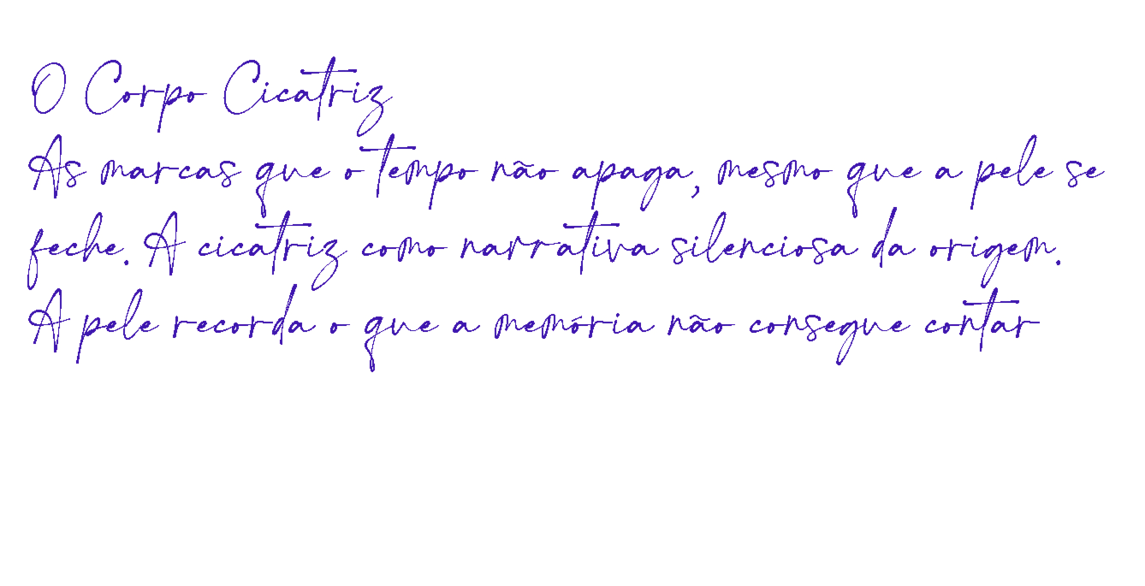 O Corpo Cicatriz
As marcas que o tempo não apaga, mesmo que a pele se
feche. A cicatriz como narrativa silenciosa da origem.
A pele recorda o que a memória não consegue contar